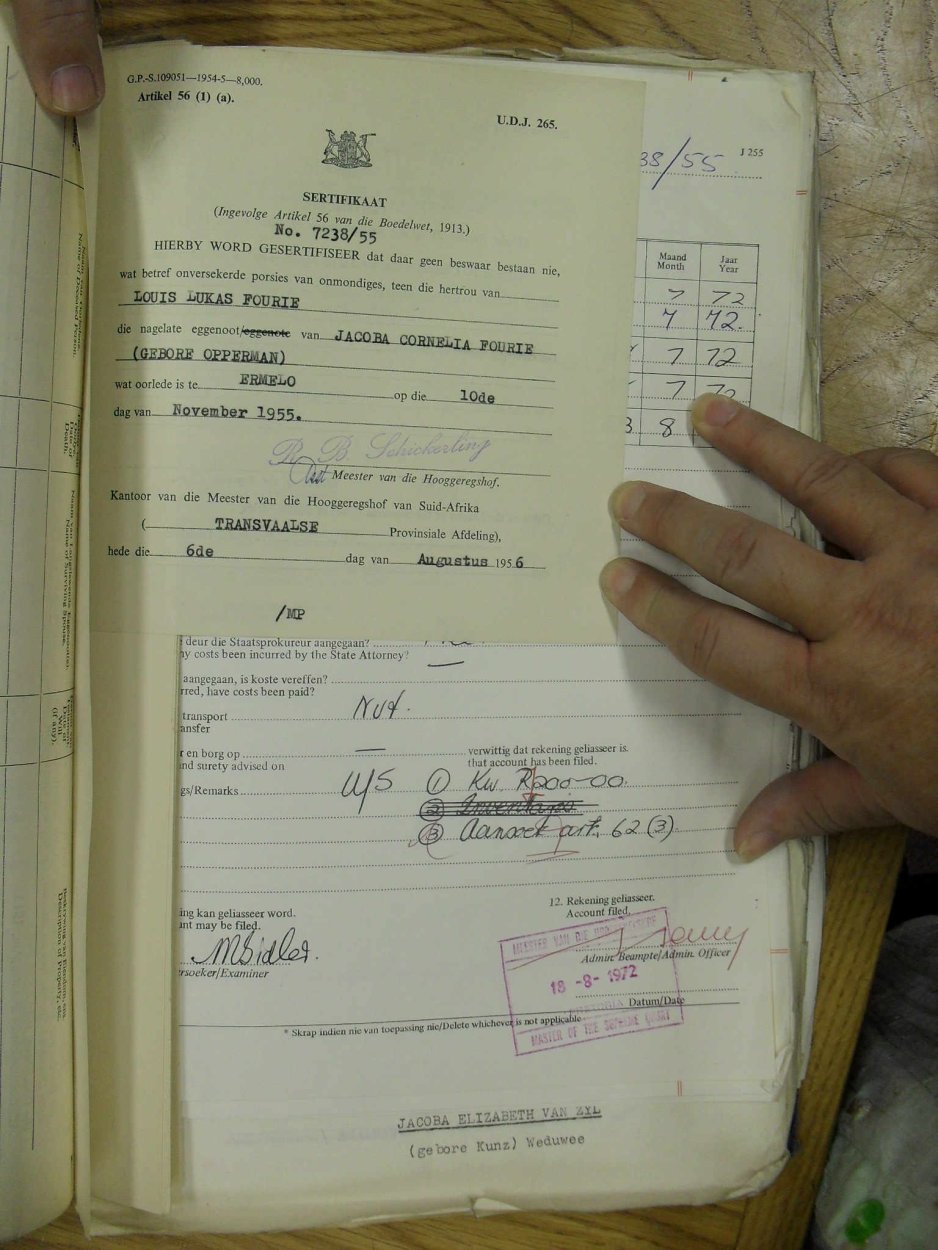 G.P.-S.109051—1954-5—8,000.
Artikel 56 (1) (a).
U.D.J. 265.
SERTIFIKAAT
(Ingevolge Artikel 56 van die Boedelwet, 1913.)
No. 7238/55
HIERBY WORD GESERTIFISEER dat daar geen beswaar bestaan nie,
wat betref onversekerde porsies van onmondiges, teen die hertrou van
LOUIS LUKAS FOURIE
die nagelate eggenoot/eggenote van JACOBA CORNELIA FOURIE
(GEBORE OPPERMAN)
wat oorlede is te ERMELO op die 10de
dag van November 1955.
R B Schickerling
Asst Meester van die Hooggeregshof.
Kantoor van die Meester van die Hooggeregshof van Suid-Afrika
( TRANSVAALSE Provinsiale Afdeling),
hede die 6de dag van Augustus 1956
/MP
38/55 J 255
Maand Jaar
Month Year
7 72
7 72.
7 72
7 72
8
deur die Staatsprokureur aangegaan?
ny costs been incurred by the State Attorney?
aangegaan, is koste vereffen?
rred, have costs been paid?
transport Nvt.
ansfer
r en borg op verwittig dat rekening geliasseer is.
nd surety advised on that account has been filed.
gs/Remarks U/S ① Kw. R200-00.
② Inventaris
③ Aansoek art. 62 (3).
ing kan geliasseer word.
unt may be filed.
MSidler.
rsoeker/Examiner
12. Rekening geliasseer.
Account filed.
Admin. Beampte/Admin. Officer
18 -8- 1972
Datum/Date
MASTER OF THE SUPREME COURT
* Skrap indien nie van toepassing nie/Delete whichever is not applicable
JACOBA ELIZABETH VAN ZYL
(gebore Kunz) Weduwee